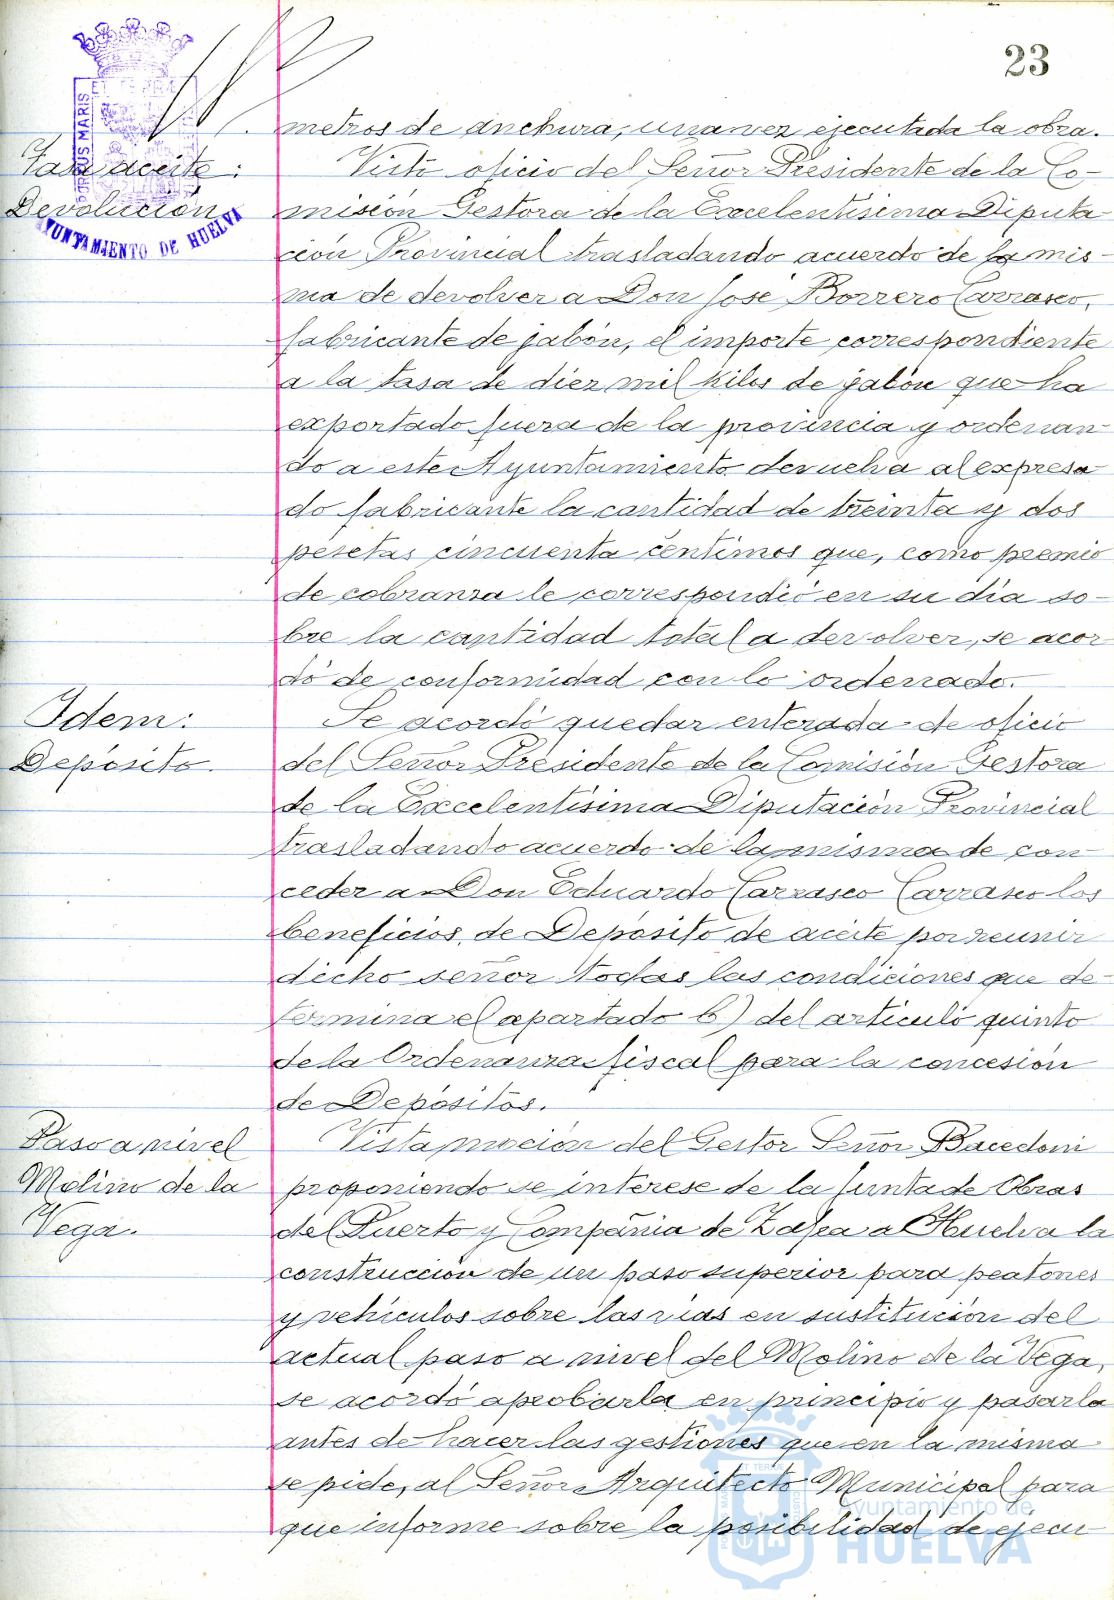 23
PORTUS MARIS
AYUNTAMIENTO DE HUELVA
metros de anchura, una vez ejecutada la obra.
Tasa aceite:
Devolución.
Visto oficio del Señor Presidente de la Co-
misión Gestora de la Excelentísima Diputa-
ción Provincial trasladando acuerdo de la mis-
ma de devolver a Don José Borrero Carrasco,
fabricante de jabón, el importe correspondiente
a la tasa de diez mil kilos de jabón que ha
exportado fuera de la provincia y ordenan-
do a este Ayuntamiento devuelva al expresa-
do fabricante la cantidad de treinta y dos
pesetas cincuenta céntimos que, como premio
de cobranza le correspondió en su día so-
bre la cantidad total a devolver, se acor-
dó de conformidad con lo ordenado.
Idem:
Depósito.
Se acordó quedar enterada de oficio
del Señor Presidente de la Comisión Gestora
de la Excelentísima Diputación Provincial
trasladando acuerdo de la misma de con-
ceder a Don Eduardo Carrasco Carrasco los
beneficios de Depósito de aceite por reunir
dicho señor todas las condiciones que de-
termina el apartado b) del artículo quinto
de la Ordenanza fiscal para la concesión
de Depósitos.
Paso a nivel
Molino de la
Vega.
Vista moción del Gestor Señor Bacedoni
proponiendo se interese de la Junta de Obras
del Puerto y Compañia de Zafra a Huelva la
construcción de un paso superior para peatones
y vehículos sobre las vias en sustitución del
actual paso a nivel del Molino de la Vega,
se acordó aprobarla en principio y pasarla
antes de hacer las gestiones que en la misma
se pide, al Señor Arquitecto Municipal para
que informe sobre la posibilidad de ejecu-
Ayuntamiento de
HUELVA